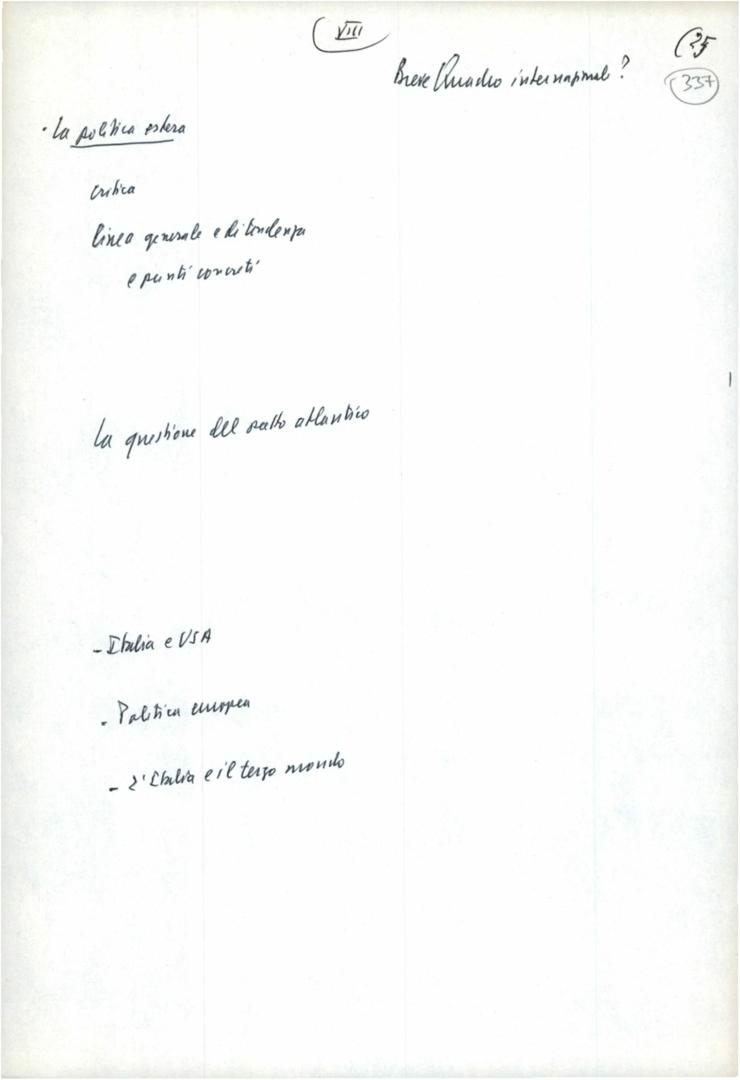 VIII
25
Breve Quadro internazionale?
337
· La politica estera
critica
linea generale e di tendenza
e punti concreti
La questione del patto atlantico
- Italia e USA
- Politica europea
- L'Italia e il terzo mondo